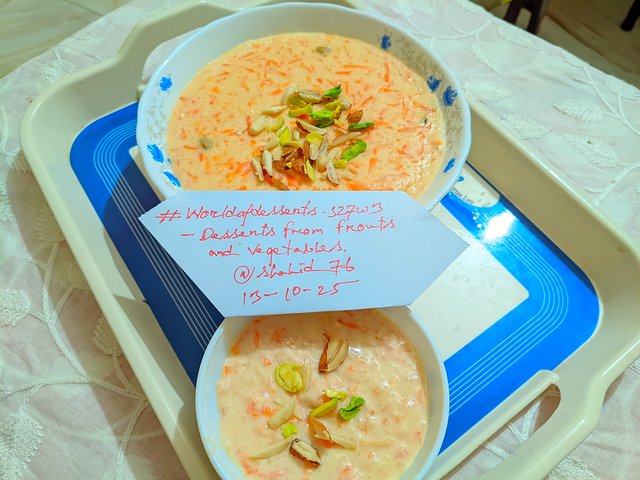 #Worldofdesserts.s27w3
- Desserts from frouts
and vegetables.
@shahid_76
13-10-25